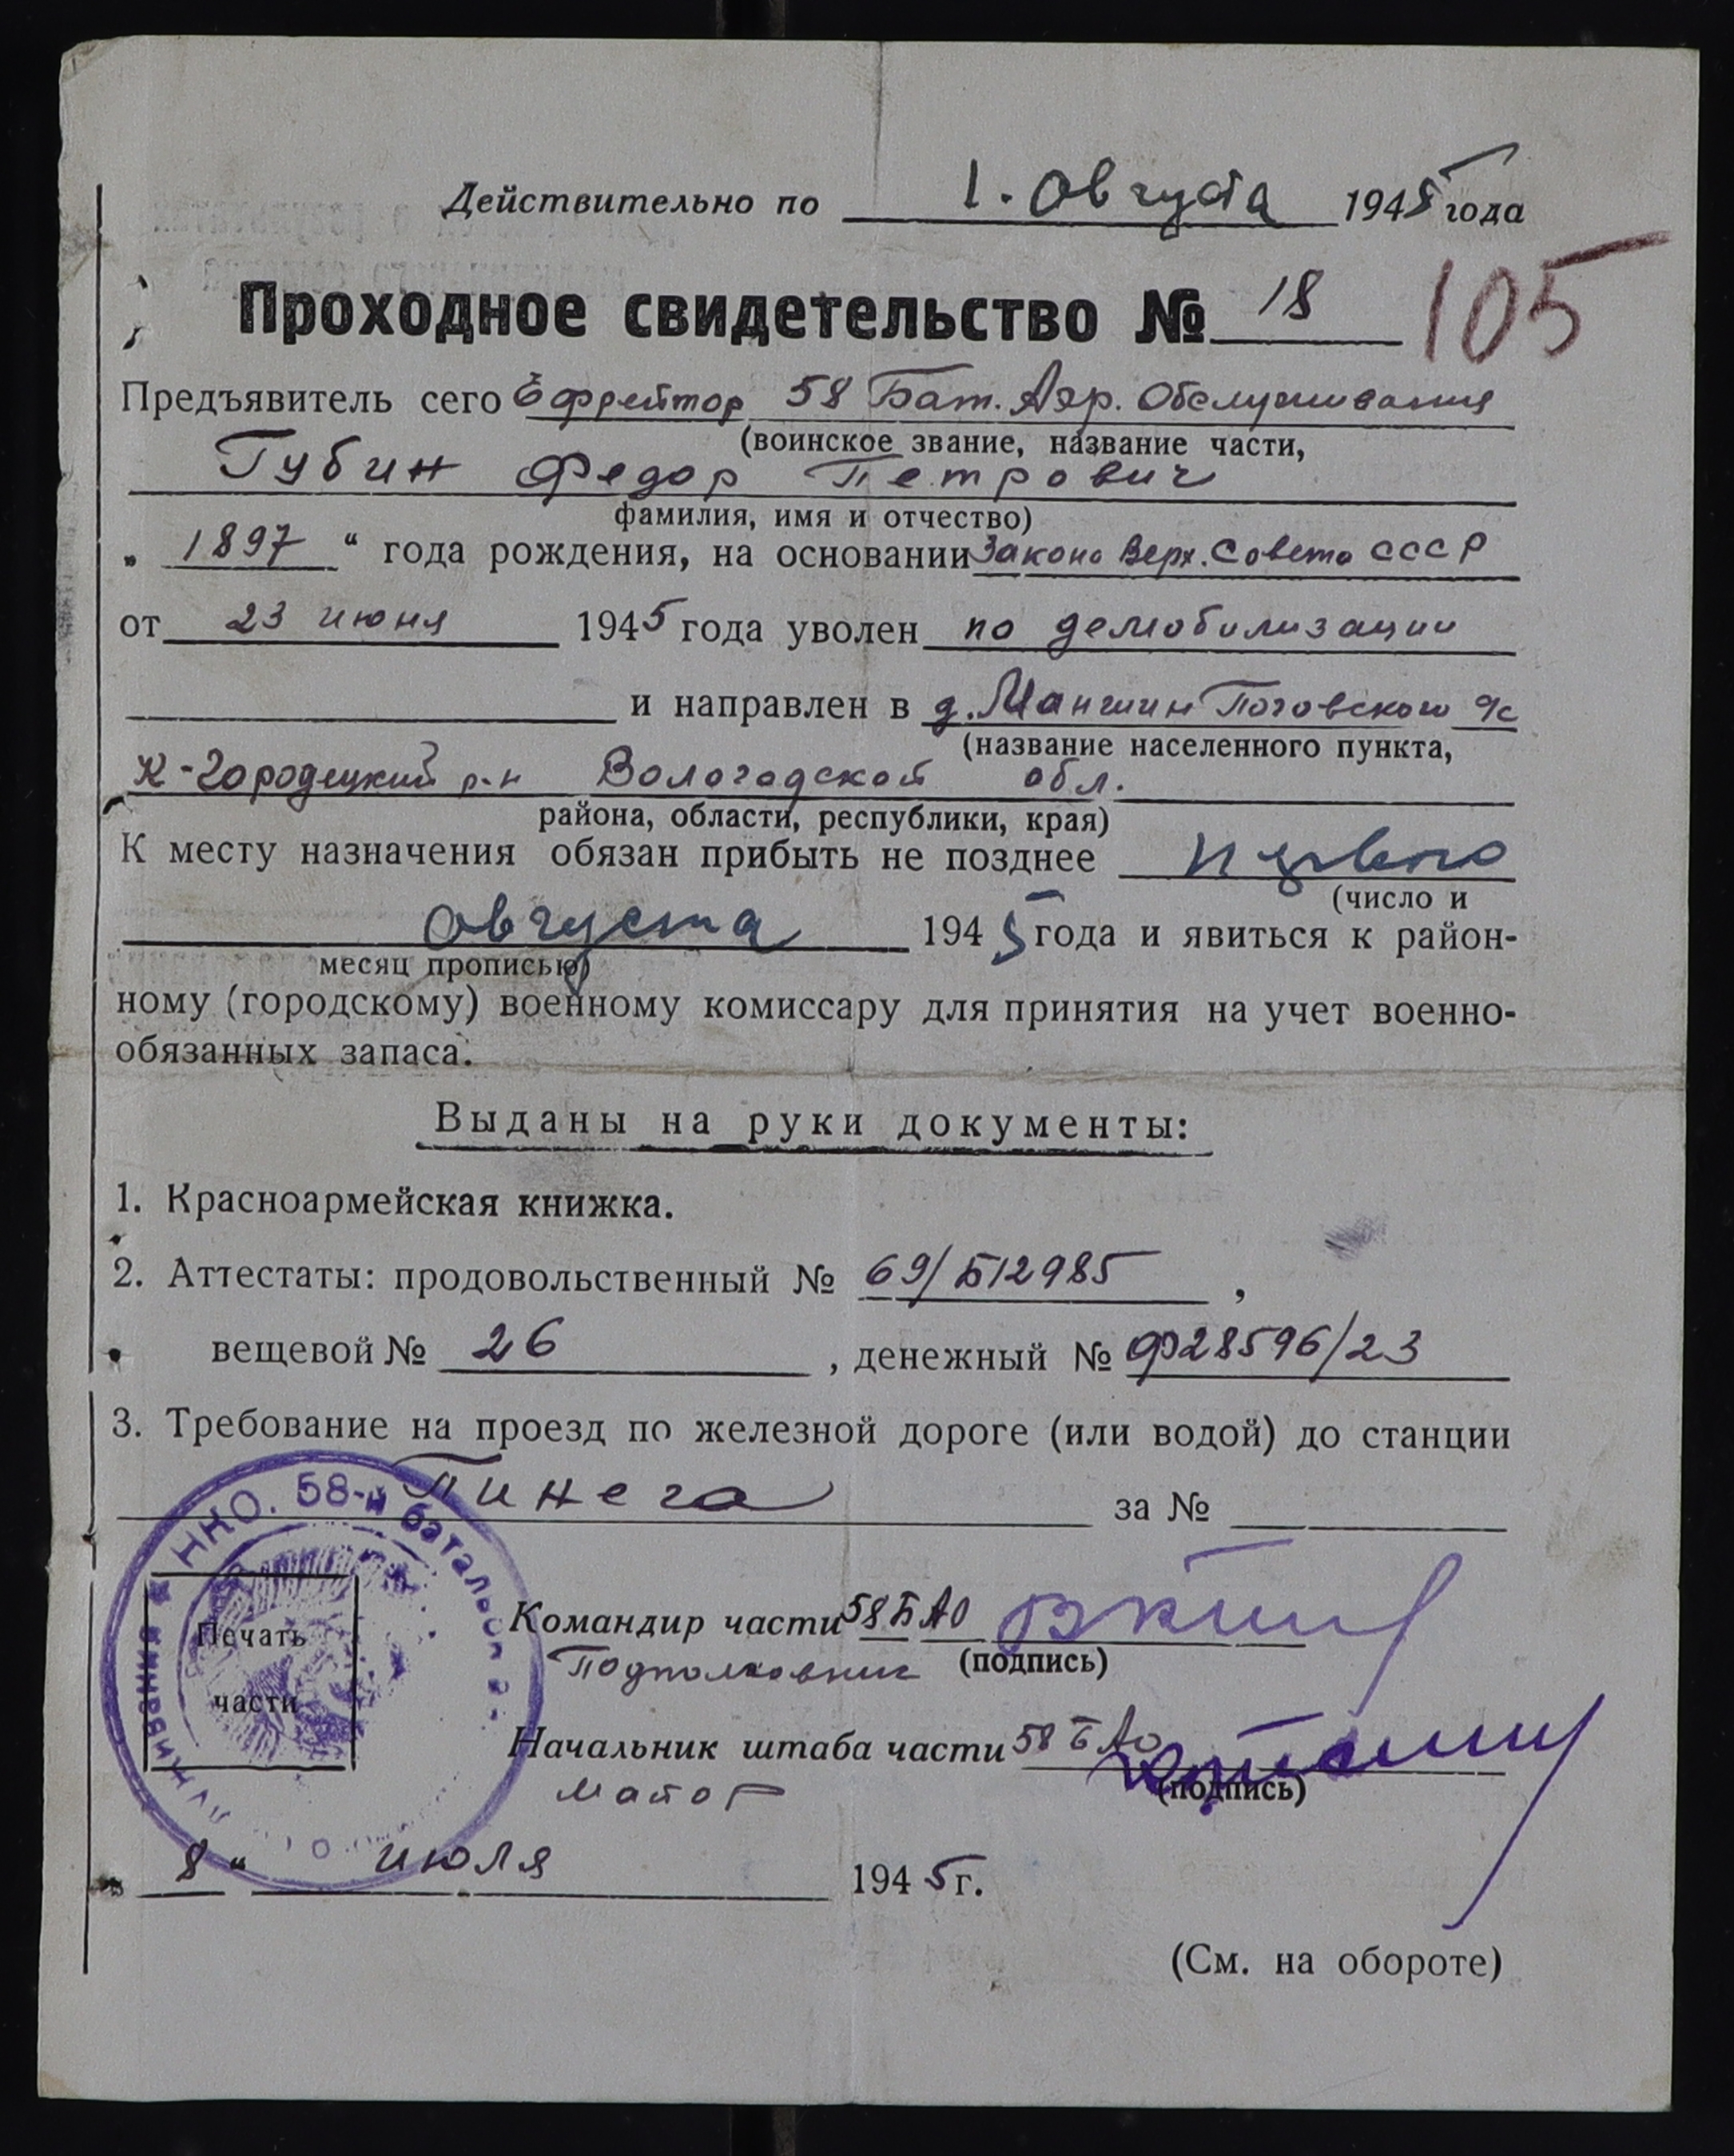 Действительно по 1. Августа 1945 года
Проходное свидетельство № 18 105
Предъявитель сего Ефрейтор 58 Бат. Аэр. Обслуживания
(воинское звание, название части,
Губин Федор Петрович
фамилия, имя и отчество)
„ 1897 “ года рождения, на основании Закона Верх. Совета СССР
от 23 июня 1945 года уволен по демобилизации
и направлен в д. Маншин Поговского с/с
(название населенного пункта,
К-Городецкий р-н Вологодской обл.
района, области, республики, края)
К месту назначения обязан прибыть не позднее
(число и
августа 1945 года и явиться к район-
месяц прописью)
ному (городскому) военному комиссару для принятия на учет военно-
обязанных запаса.
Выданы на руки документы:
1. Красноармейская книжка.
2. Аттестаты: продовольственный № 69/Б12985 ,
вещевой № 26 , денежный № Ф28596/23
3. Требование на проезд по железной дороге (или водой) до станции
Пинега за №
НКО. 58-й батальон
Печать
части
Командир части 58 БАО
Подполковник (подпись)
Начальник штаба части 58 БАО
майор (подпись)
„ 8 “ июля 1945 г.
(См. на обороте)